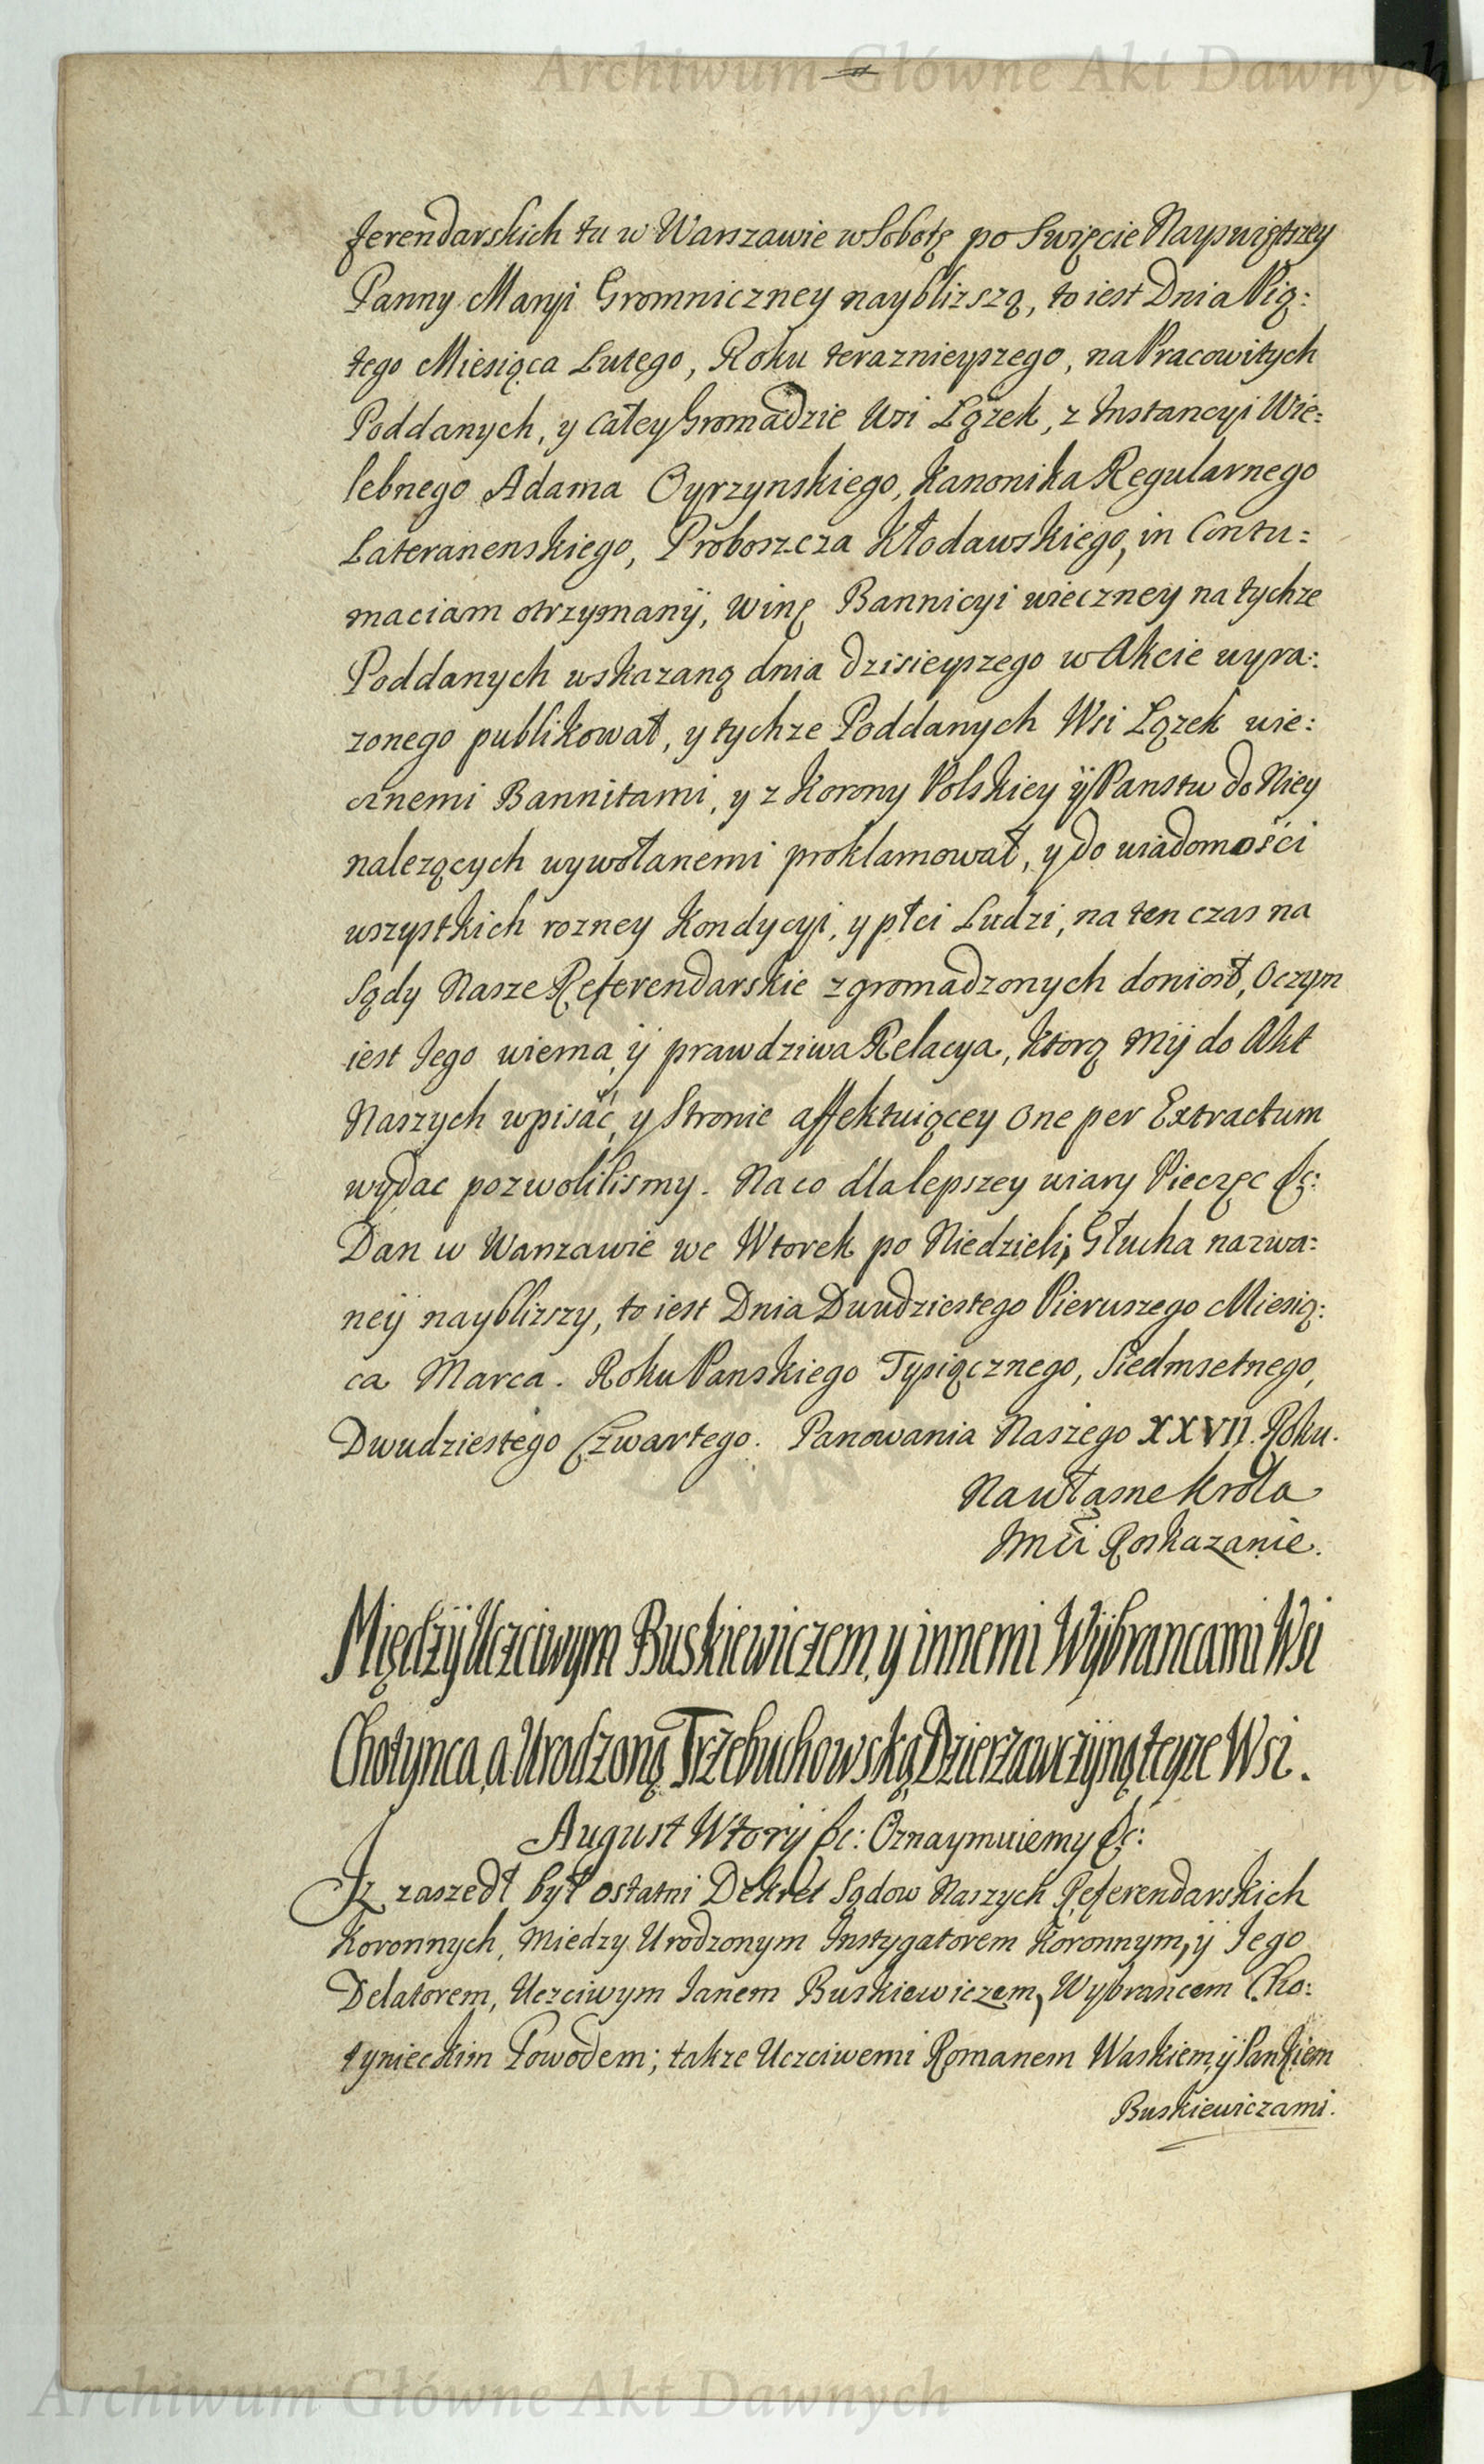 Archiwum Główne Akt Dawnych
ferendarskich tu w Warszawie w Sobotę po Swięcie Nayswiętszey
Panny Maryi Gromniczney naybliższą, to iest Dnia Pią:
tego Miesiąca Lutego, Roku teraznieyszego, na Pracowitych
Poddanych, y całey Gromadzie Wsi Lązek, z Instancyi Wie:
lebnego Adama Oyrzynskiego, Kanonika Regularnego
Lateranenskiego, Proboszcza Kłodawskiego, in Contu:
maciam otrzymanÿ, winę Bannicyi wieczney na tychze
Poddanych wskazaną dnia dzisieyszego w Akcie wyra:
zonego publikował, y tychze Poddanych Wsi Lązek wie:
cznemi Bannitami, y z Korony Polskiey ÿ Panstw do Niey
nalezących wywołanemi proklamował, y do wiadomości
wszystkich rozney Kondycyi, y płci Ludzi, na ten czas na
Sądy Nasze Referendarskie zgromadzonych doniosł, Oczym
iest Jego wierna ÿ prawdziwa Relacya, ktorą Mÿ do Akt
Naszych wpisać, y Stronie affektuiącey One per Extractum
wydac pozwolilismy. Na co dla lepszey wiary Pieczęc &c:
Dan w Warszawie we Wtorek po Niedzieli, Głucha nazwa:
neÿ naybliszy, to iest Dnia Dwudziestego Pierwszego Miesią:
ca Marca. Roku Panskiego Tysiącznego, Siedmsetnego,
Dwudziestego Czwartego. Panowania Naszego XXVII. Roku.
Na własne Krola
Jmći Roskazanie.
Między Uczciwym Buskiewiczem, y innemi Wÿbrancami Wsi
Chotynca, a Urodzoną Trzebuchowską Dzierżawczÿną teyze Wsi.
August Wtorÿ &c: Oznaymuiemy &c:
Iz zaszedł był ostatni Dekret Sądow Naszych Referendarskich
Koronnych, Miedzy Urodzonym Instygatorem Koronnym, ÿ Jego
Delatorem, Uczciwym Janem Buskiewiczem, Wybrańcem Cho:
tynieckim Powodem; takze Uczciwemi Romanem Waskiem, ÿ Pankiem
Buskiewiczami.
Archiwum Główne Akt Dawnych